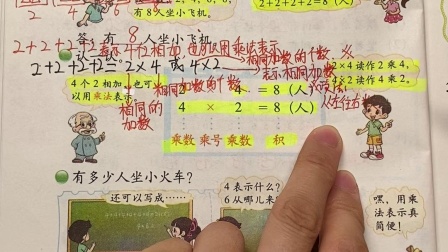 有8人坐小飞机。
答:有8人坐小飞机。
2+2+2+2表示4个2相加,也可以用乘法表示
2+2+2+2= 2×4 或 4×2
相同加数的个数
表示相同加数的个数
4个2相加,也可
以用乘法表示
2×4读作2乘4,
4×2读作4乘2。
相同的
加数
2 4 = 8(人)
4 × 2 = 8(人)
从左往右
乘数 乘号 乘数 积
有多少人坐小火车?
还可以写成……
4表示什么?
6从哪儿来
嘿,用乘
法表示真
简便!